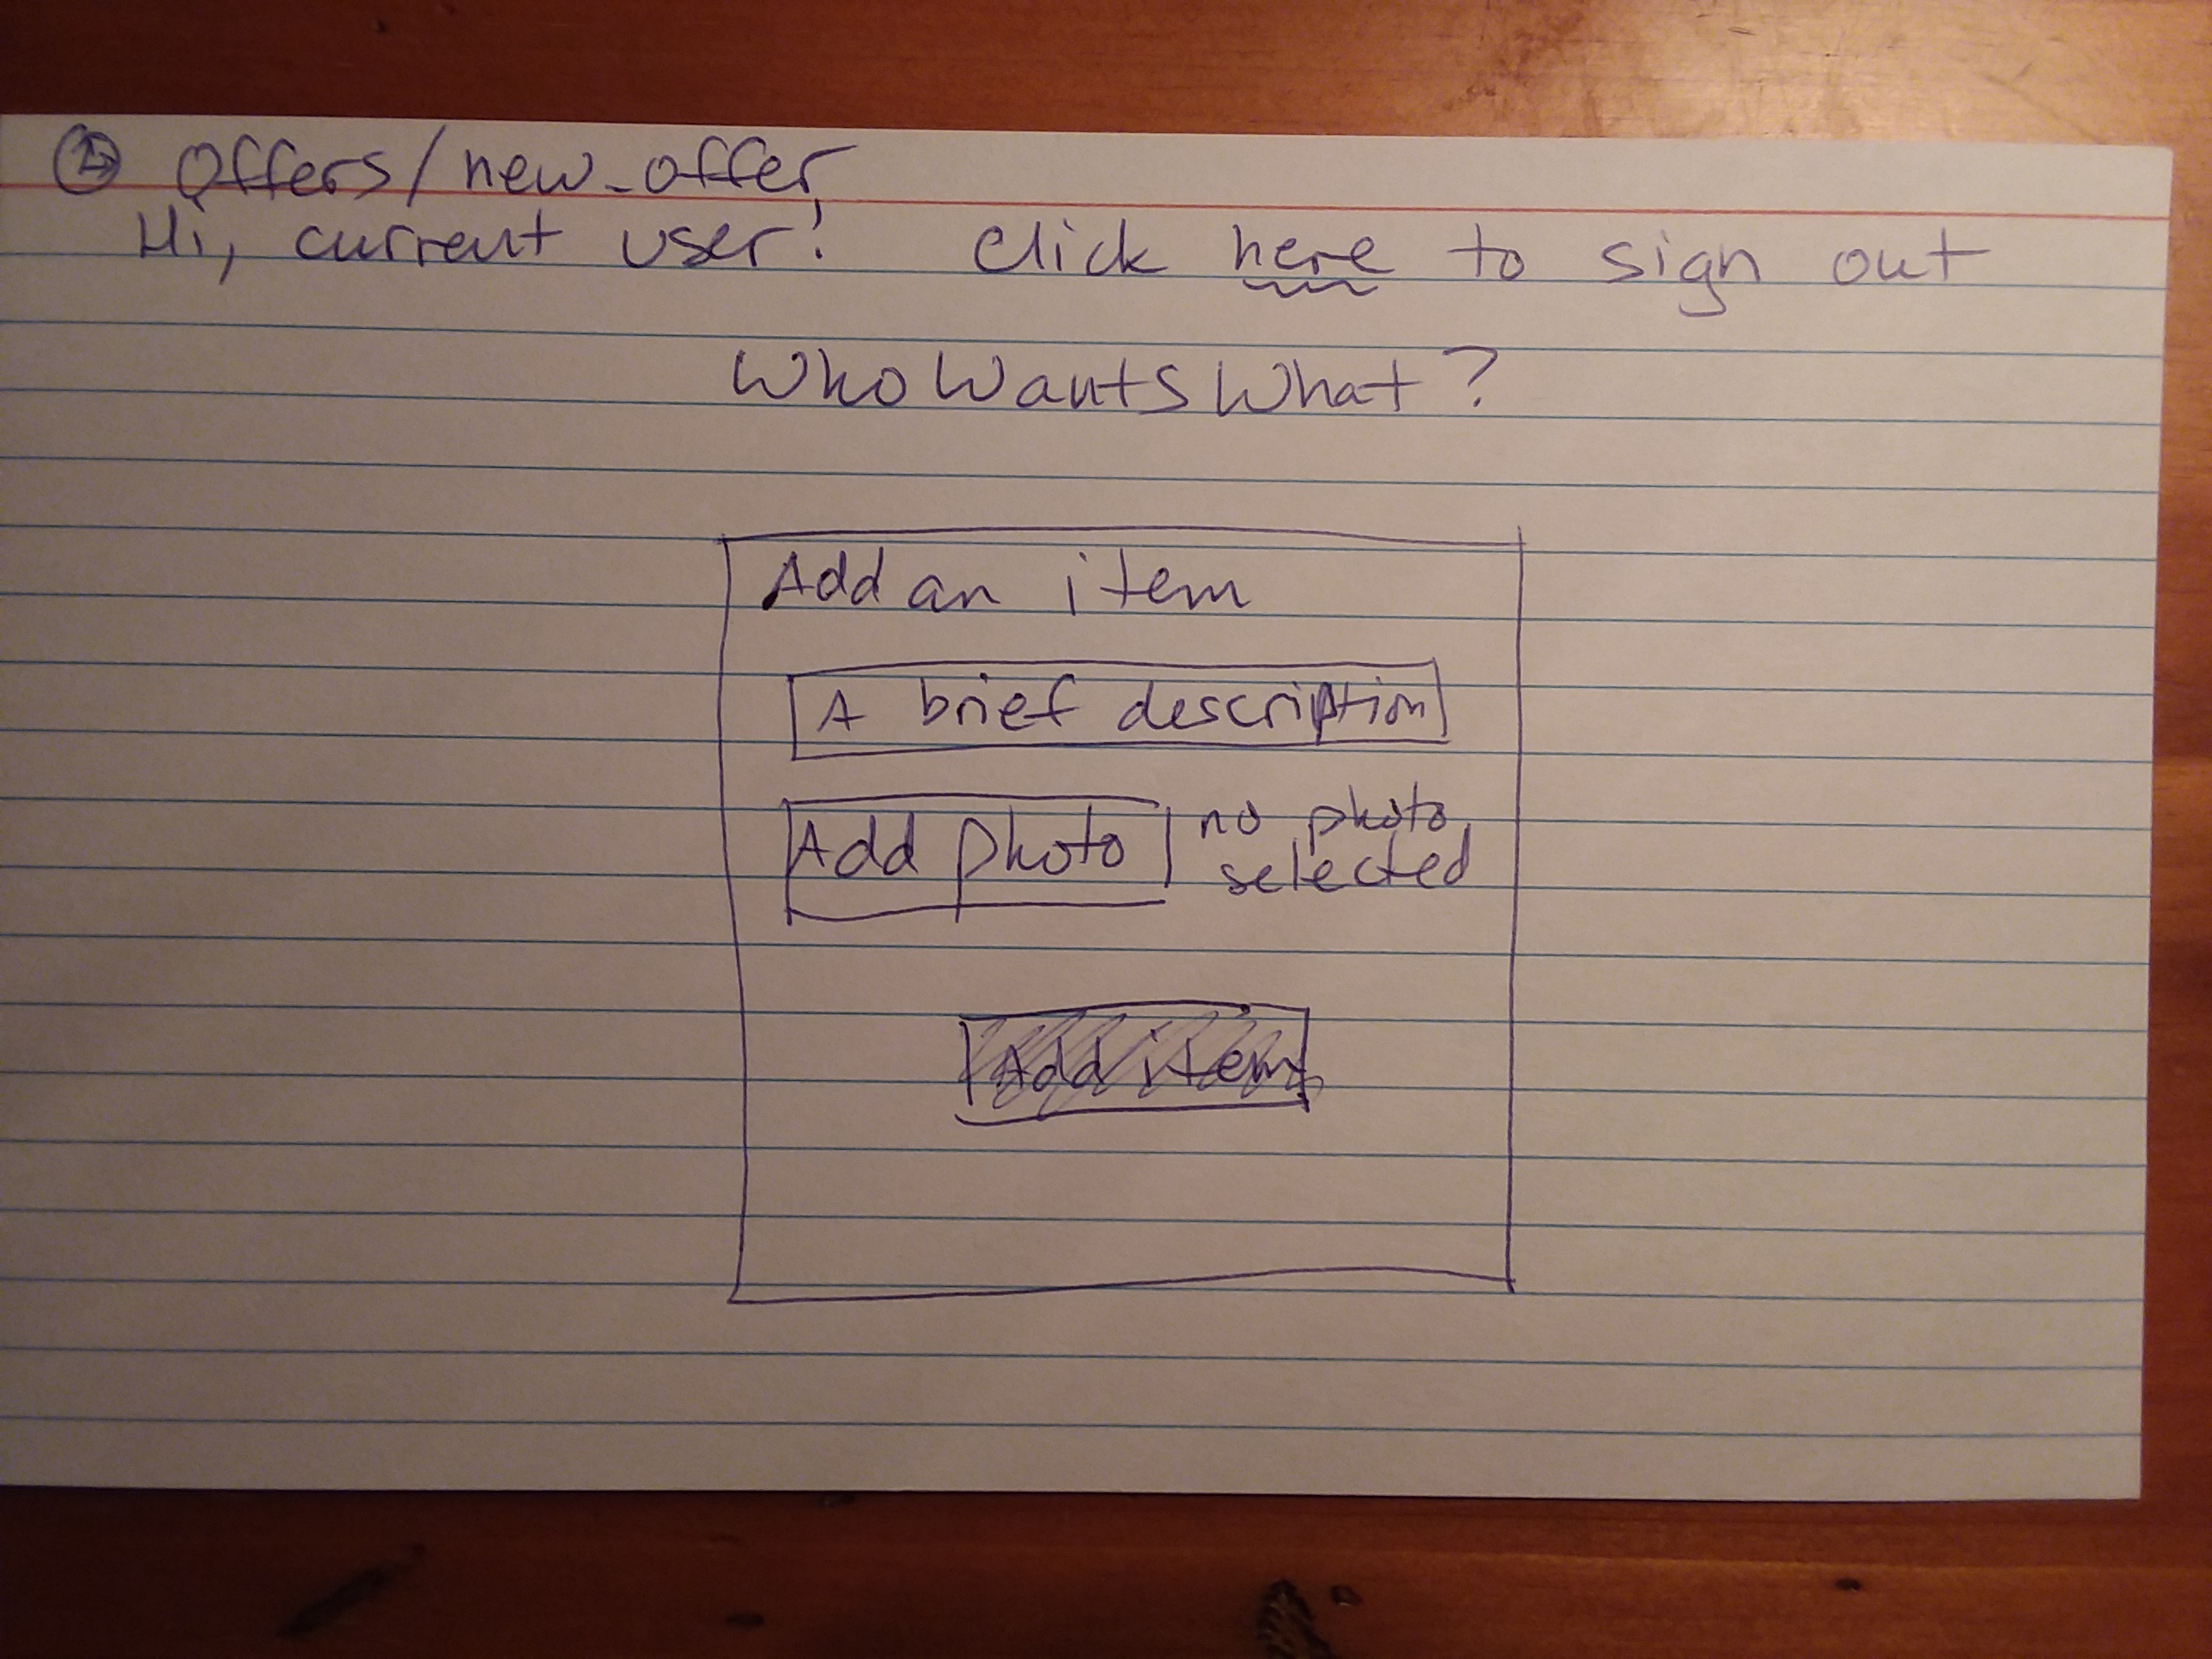 Offers/new_offer
Hi, current user! Click here to sign out
WhoWantsWhat?
Add an item
A brief description
Add photo no photo
selected
Add item